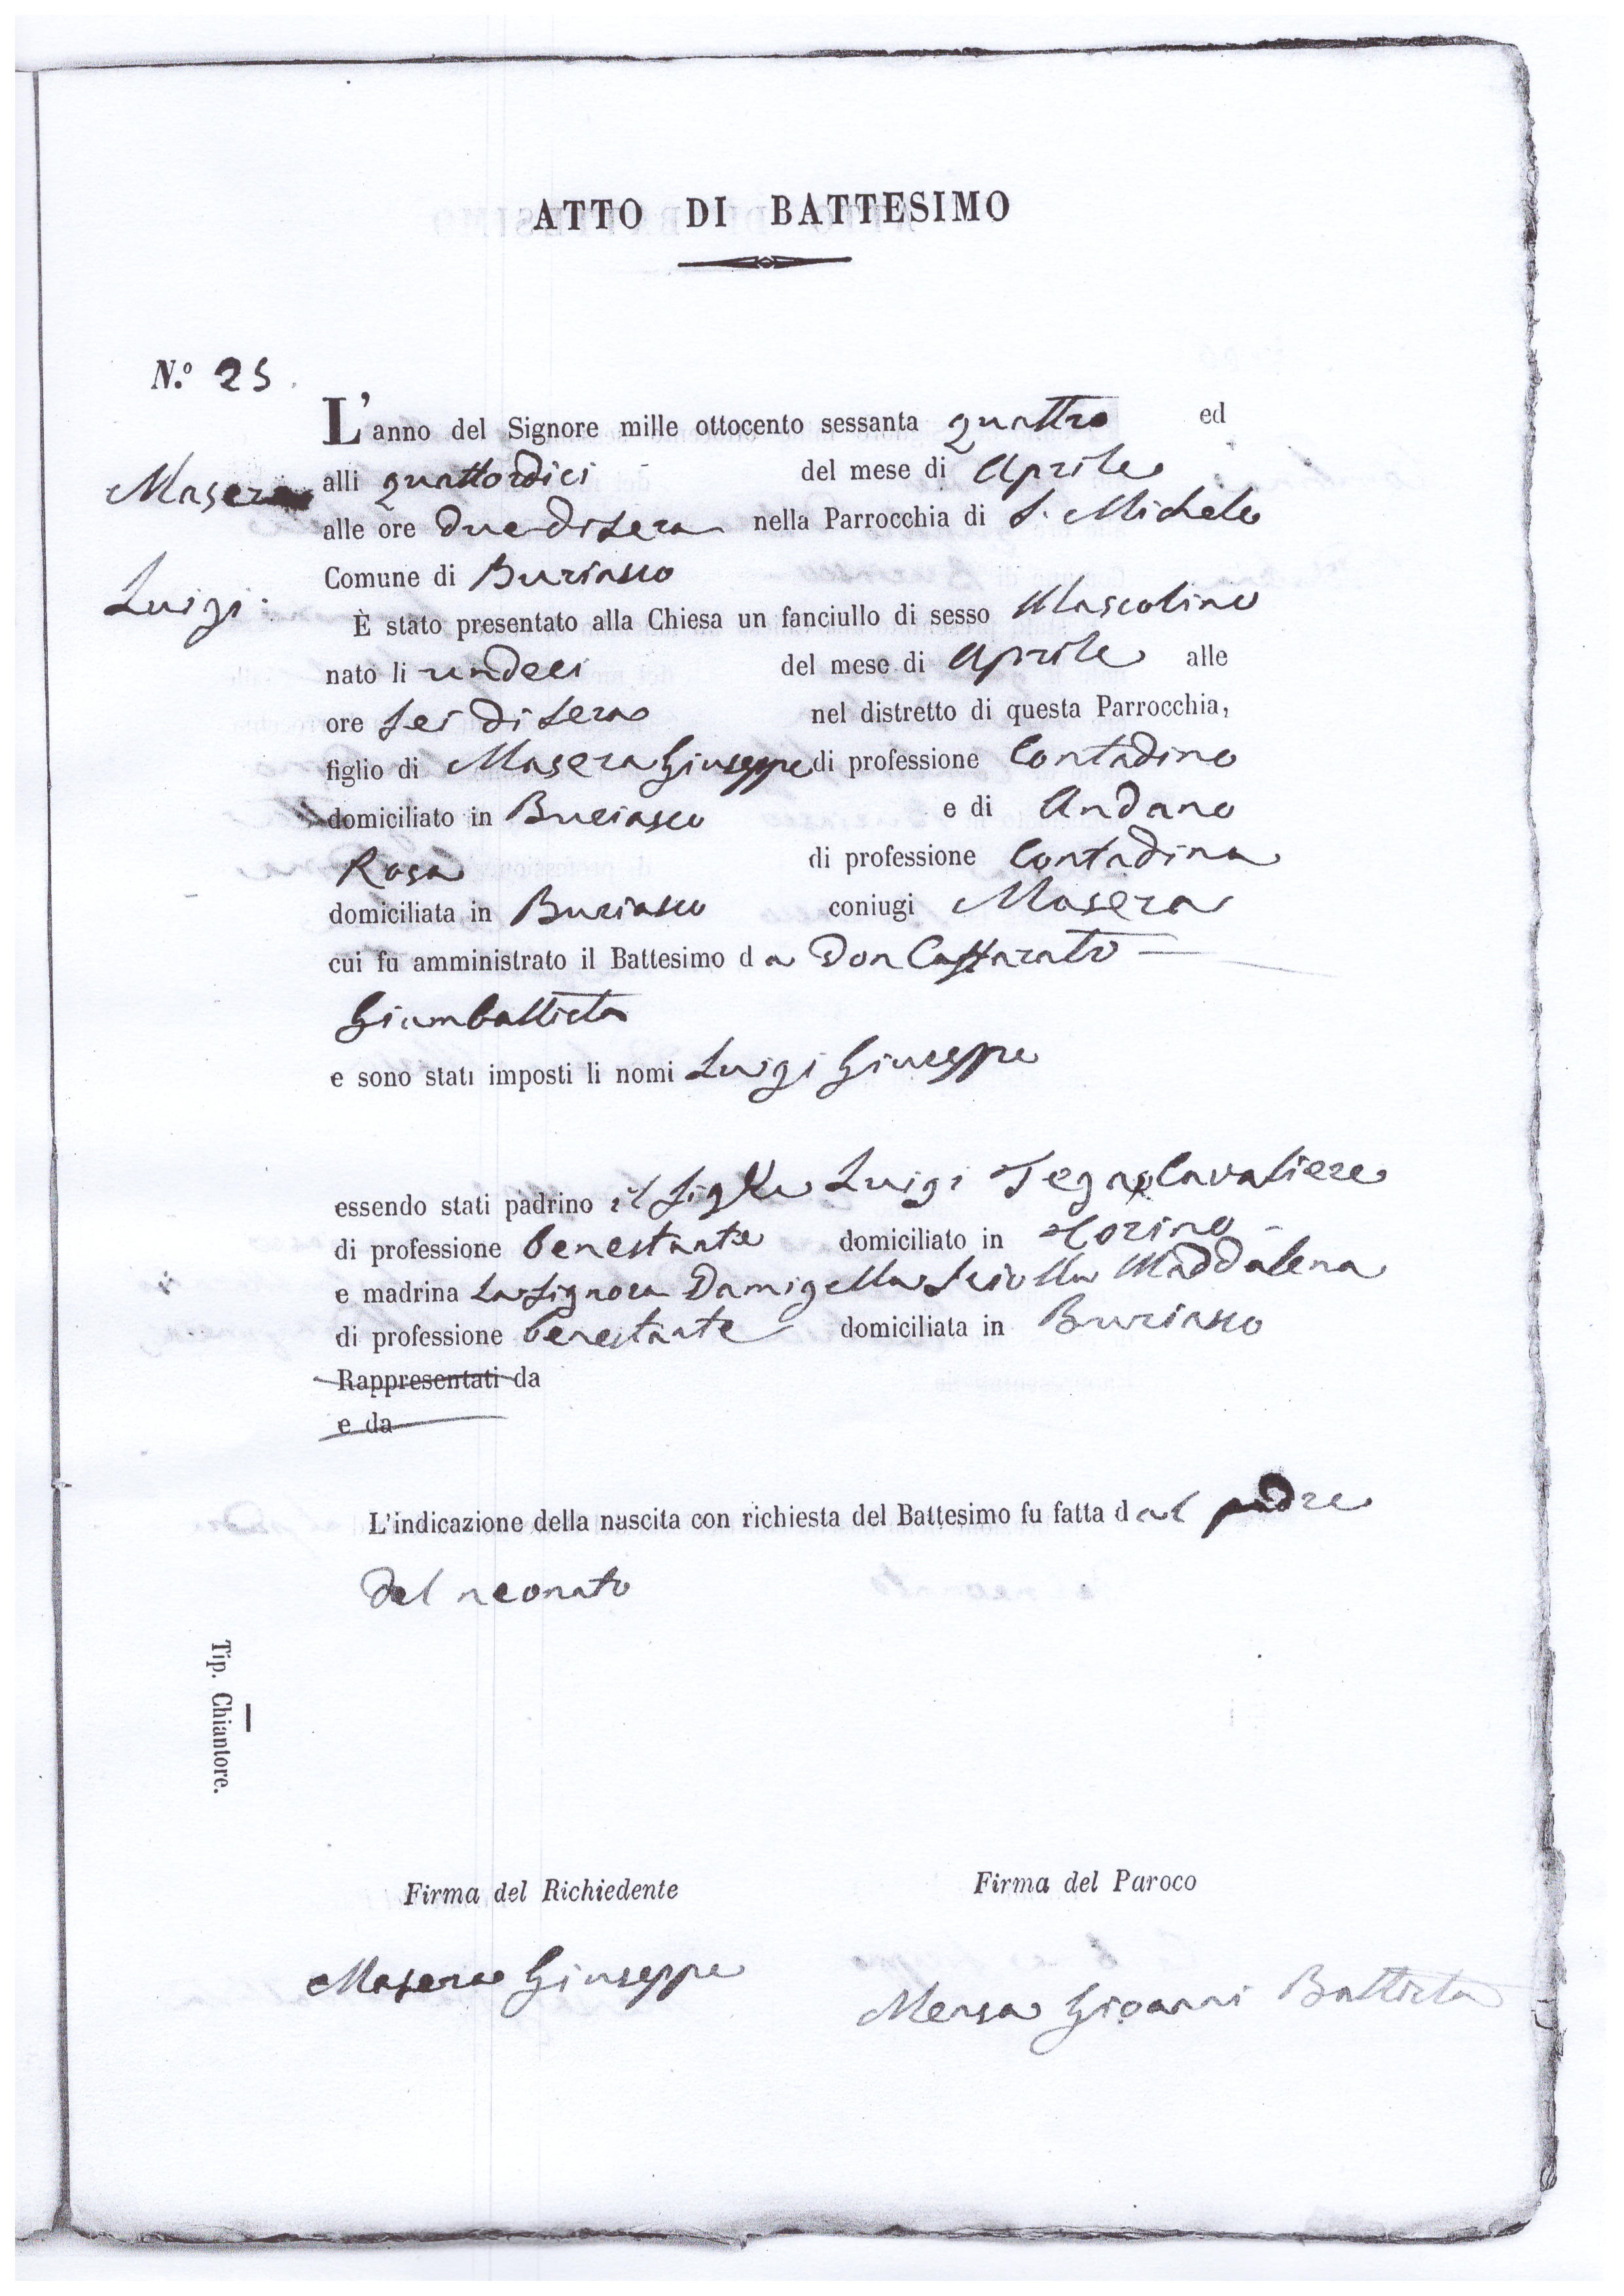 ATTO DI BATTESIMO
N.º 25
L'anno del Signore mille ottocento sessanta quattro ed
Masera
alli quattordici del mese di Aprile
alle ore due di sera nella Parrocchia di S. Michele
Comune di Buriasco
Luigi
È stato presentato alla Chiesa un fanciullo di sesso Mascolino
nato li undeci del mese di Aprile alle
ore sei di sera nel distretto di questa Parrocchia,
figlio di Masera Giuseppe di professione Contadino
domiciliato in Buriasco e di Andano
Rosa di professione Contadina
domiciliata in Buriasco coniugi Masera
cui fu amministrato il Battesimo da Don
Giambattista
e sono stati imposti li nomi Luigi Giuseppe
essendo stati padrino il Luigi Cavaliere
di professione benestante domiciliato in Torino
e madrina La Signora Damigella Maddalena
di professione benestante domiciliata in Buriasco
Rappresentati da
e da
L'indicazione della nascita con richiesta del Battesimo fu fatta dal padre
del neonato
Tip. Chiantore.
Firma del Richiedente Firma del Paroco
Masera Giuseppe Mensa Gioanni Battista